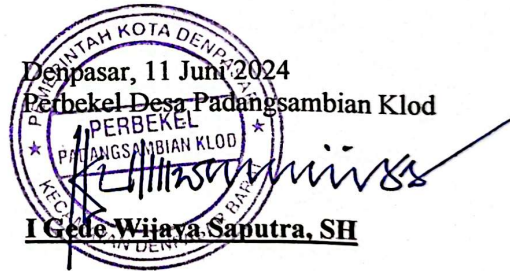 Denpasar, 11 Juni 2024
Perbekel Desa Padangsambian Klod
PEMERINTAH KOTA DENPASAR
PERBEKEL
PADANGSAMBIAN KLOD
KECAMATAN DENPASAR BARAT
I Gede Wijaya Saputra, SH